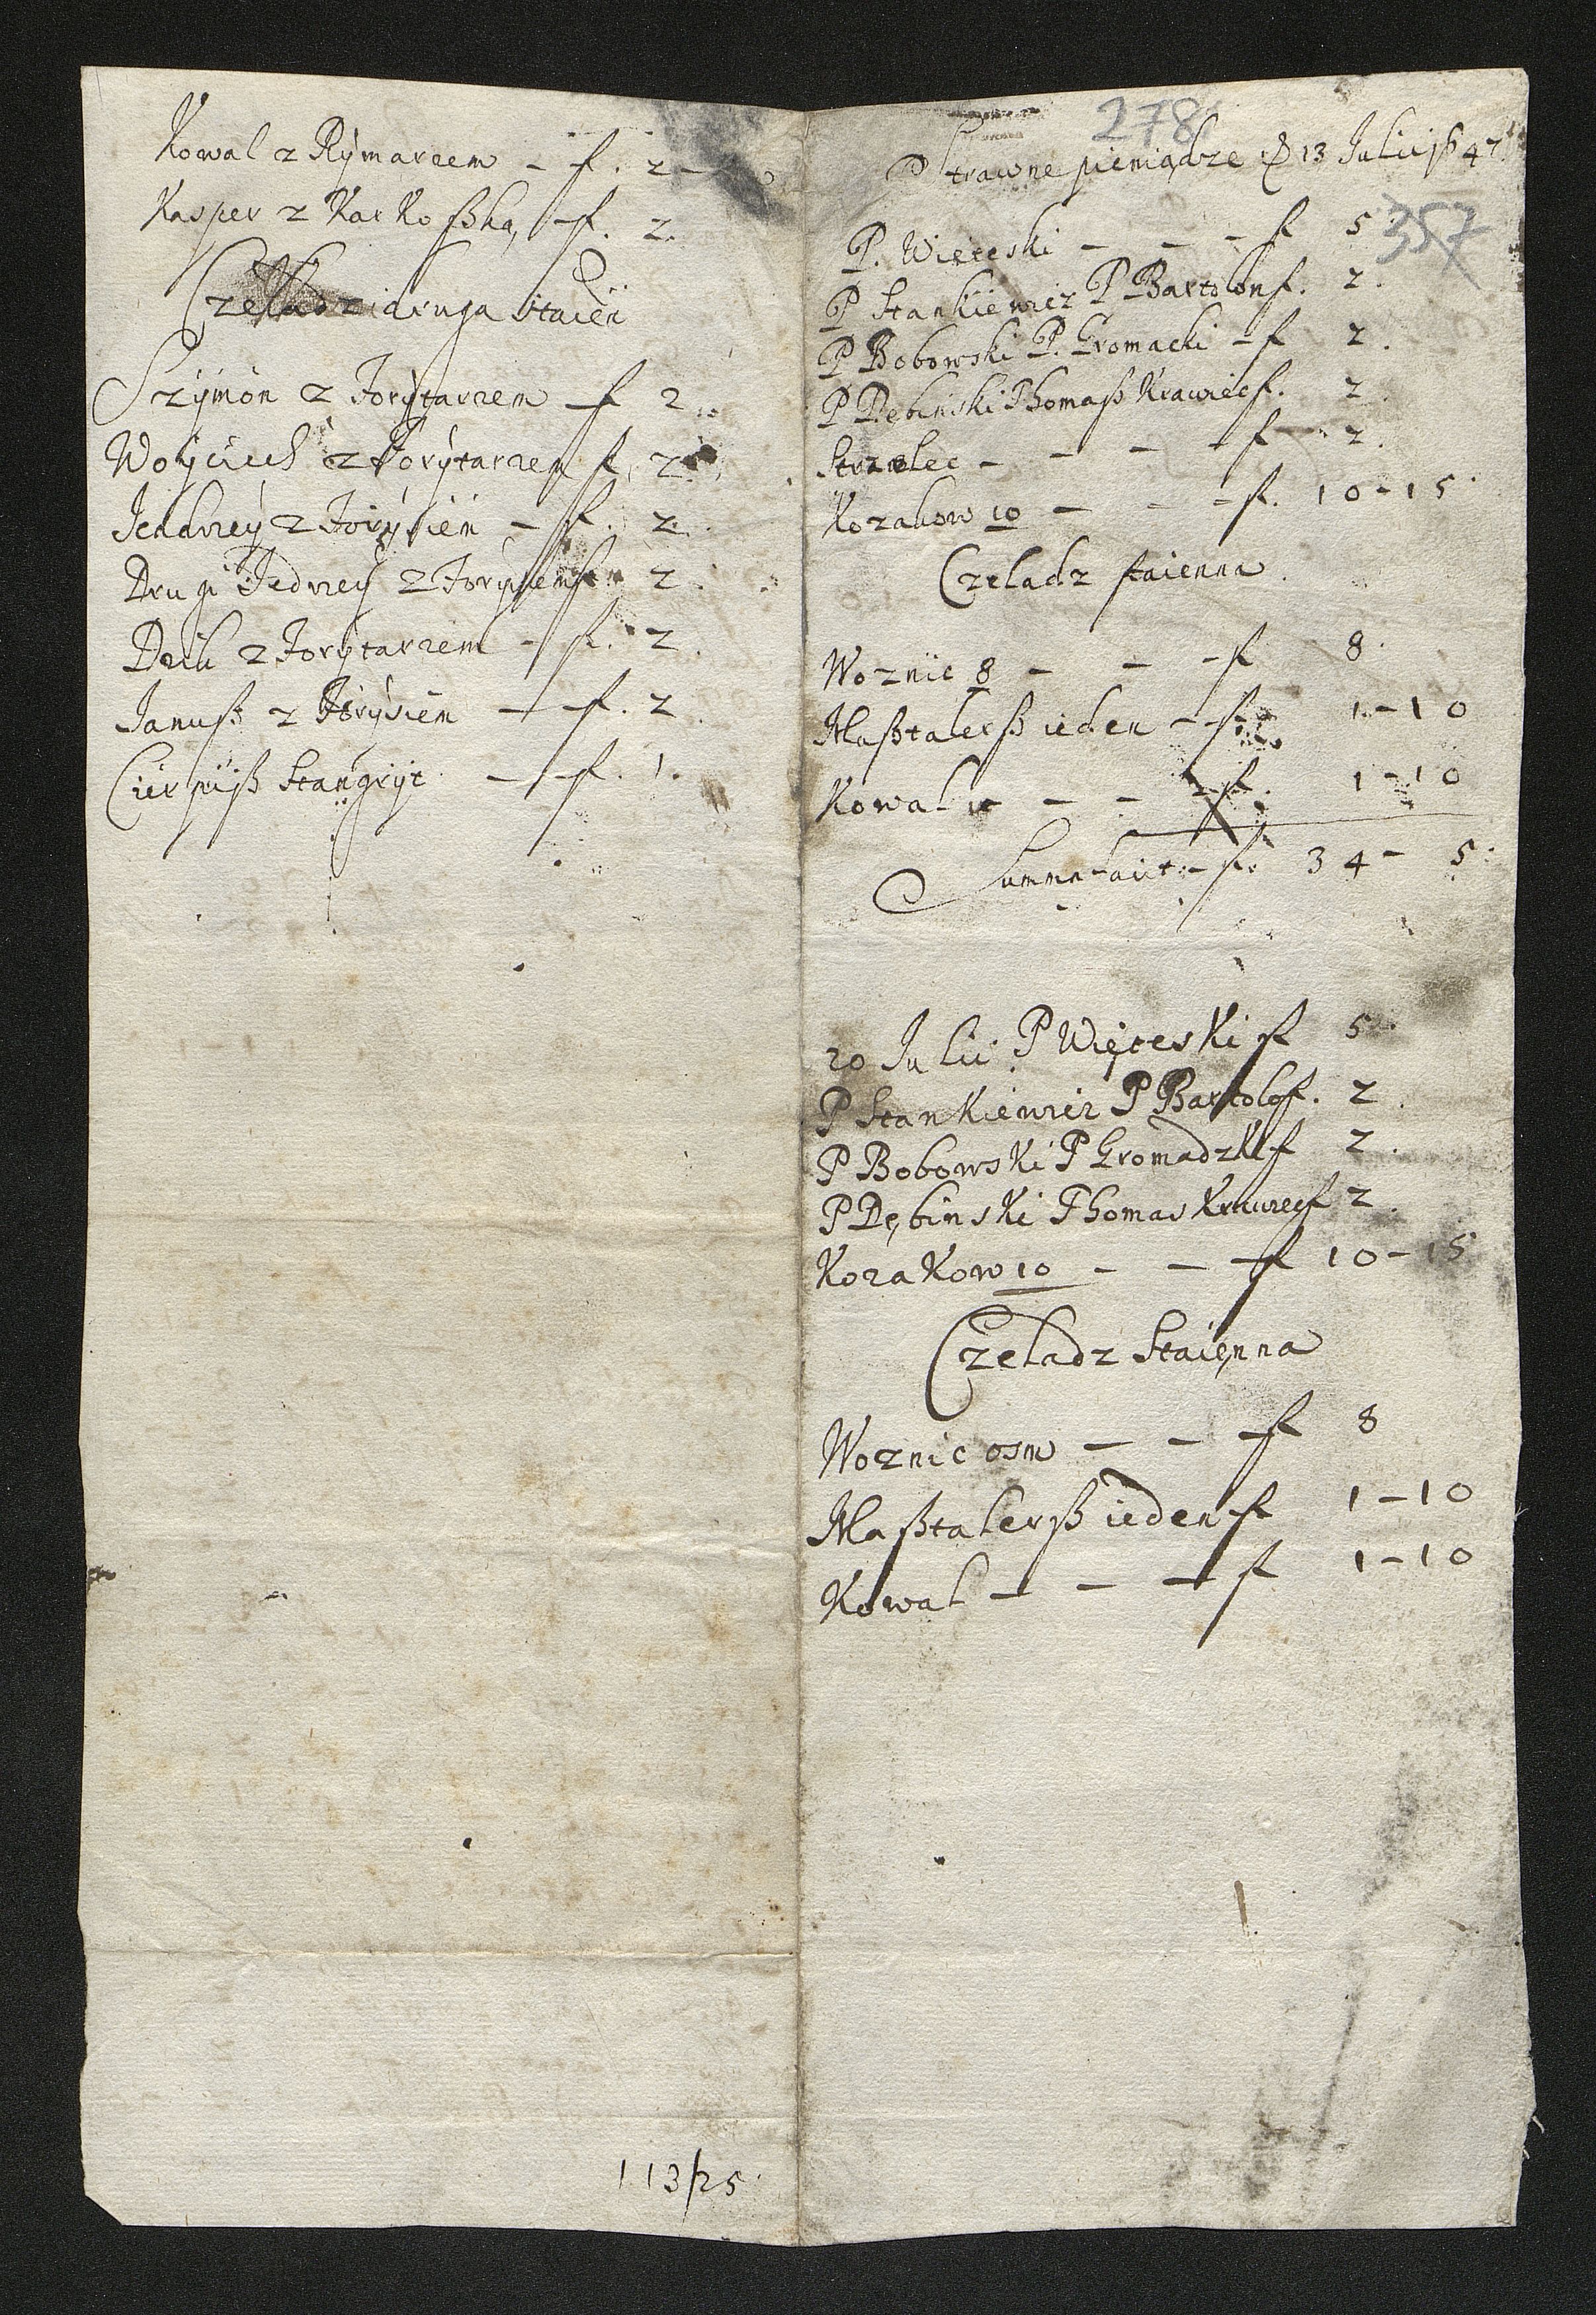 Kowal z Rÿmarzem – f. 2 –
Kasper z Karkoßką – f. 2.
Czeladz druga staien
Szÿmon z Forÿtarzem – f 2
Woÿciech z Forÿtarzem f. 2
Jendrzeÿ z Forÿsiem – f. 2.
Drugi Jedrzeÿ z Forÿsiem f. 2.
z Forÿtarzem – f. 2.
Januß z Forÿsiem – f. 2.
Cierpiß Stangrÿt – f. 1.
113/25.
278
Strawne pieniądze D 13 Julii 1647
357
P. Więceski – – – f 5.
P Stankiewicz P Bartolon f. 2.
P Bobowski P. Gromacki – f 2.
P Dębinski Thomaß Krawiec f. 2.
Strzelec – – – – f – 2.
Kozakow 10 – – – f. 10 – 15.
Czeladz staienna.
Woznic 8 – – – f 8.
Maßtalerß ieden – f. 1 – 10
Kowal – – – f. 1 – 10
Summa facit – f. 34 – 5.
20 Julii P Więceski f 5.
P Stankiewicz P Bartolo f. 2.
P Bobowski P Gromadzki f 2.
P Dębinski Thomas Krawiec f 2.
Kozakow 10 – – – f 10 – 15
Czeladz Staienna
Woznic osm – – – f 8
Maßtalerß ieden f 1 – 10
Kowal – – – f 1 – 10